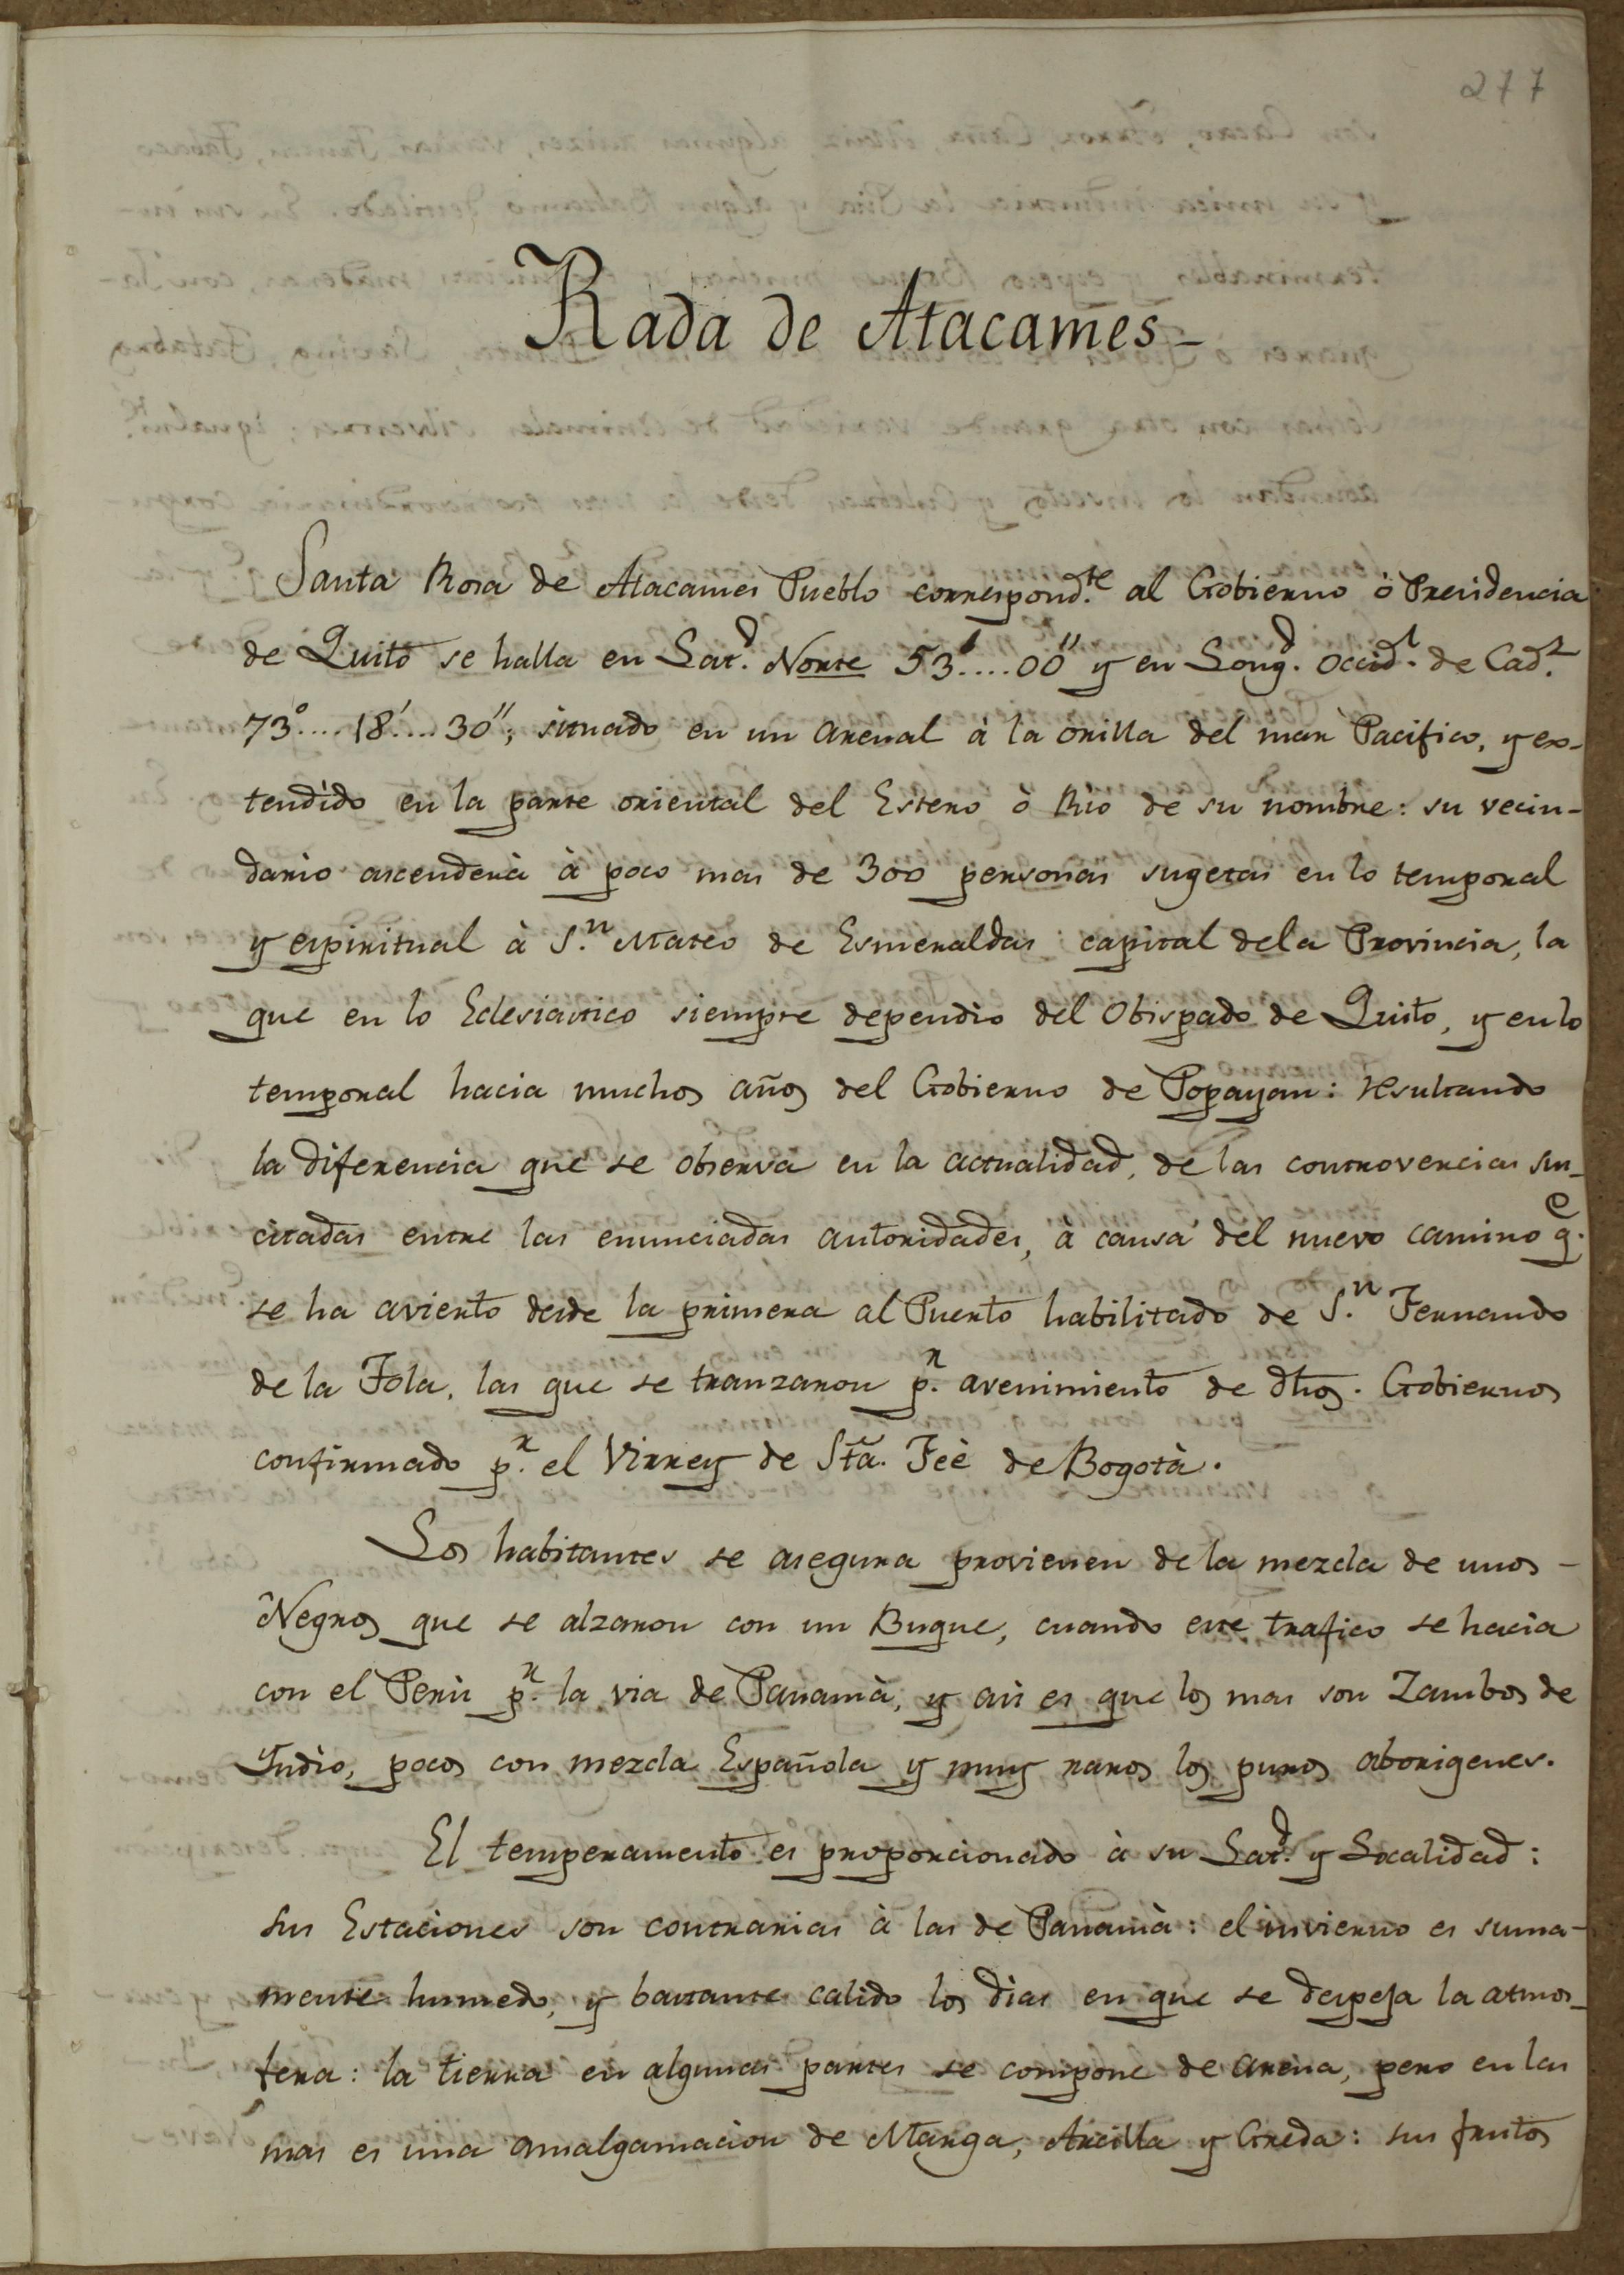 277
Rada de Atacames_
Santa Rosa de Atacames Pueblo correspond.te al Gobierno ò Presidencia
de Quito se halla en Lat.d Norte 53'....00" y en Long.d Occid.l de Cad.z
73°....18'....30"; situado en un arenal à la orilla del mar Pacifico, y ex-
tendido en la parte oriental del Estero ò Rio de su nombre: su vecin-
dario ascenderà à poco mas de 300 personas sugetas en lo temporal
y espiritual à S.n Mateo de Esmeraldas capital dela Provincia, la
que en lo Eclesiastico siempre dependio del Obispado de Quito, y en lo
temporal hacia muchos años del Gobierno de Popayan: resultando
la diferencia que se observa en la actualidad, de las controvercias sus_
citadas entre las enunciadas autoridades, à causa del nuevo camino q.e
se ha avierto desde la primera al Puerto habilitado de S.n Fernando
de la Tola, las que se tranzaron p.r avenimiento de dhos. Gobiernos
confirmado p.r el Virrey de Sta. Feè de Bogotà.
Los habitantes se asegura provienen de la mezcla de unos -
Negros que se alzaron con un Buque, cuando este trafico se hacia
con el Perù p.r la via de Panamà; y asi es que los mas son Zambos de
Yndio, pocos con mezcla Española y muy raros los puros aborigenes.
El temperamento es proporcionado à su Lat.d y Localidad:
sus Estaciones son contrarias à las de Panamà: el invierno es suma-
mente humedo, y bastante calido los dias en que se despeja la atmos_
fera: la tierra en algunas partes se compone de arena, pero en las
mas es una amalgamacion de Marga, Arcilla y Greda: sus frutos